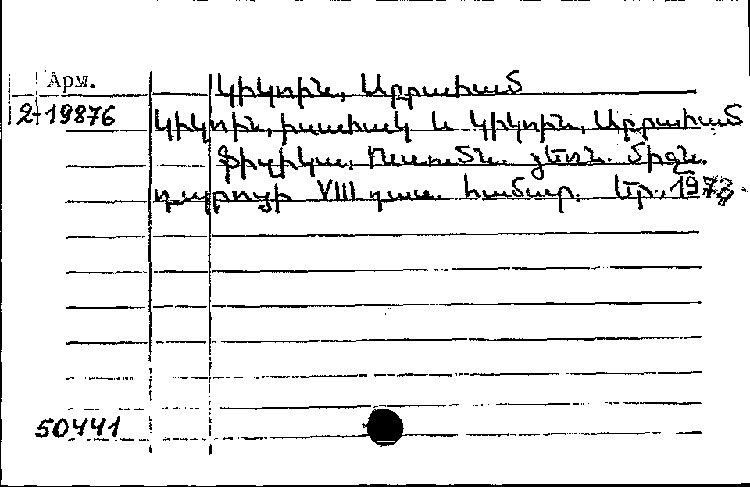 Арм.
Կիկոին, Աբրահամ
2-19876
Կիկոին, իսահակ և Կիկոին, Աբրահամ
Ֆիզիկա. Ուսումն. ձեռն. միջն.
դպրոցի VIII դաս. համար. Եր., 1973.
50441